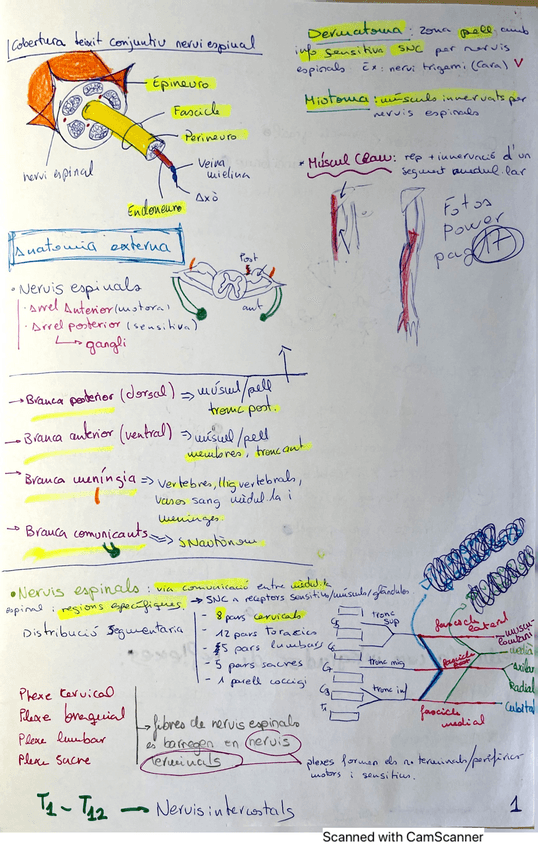 Cobertura teixit conjuntiu nervi espinal
Epineuro
Fascicle
Perineuro
Veina
mielina
Axó
Endoneuro
nervi espinal
Dermatoma: zona pell amb
info sensitiva SNC per nervis
espinals Ex: nervi trigemi (cara) V
Miotoma: músculs innervats per
nervis espinals
* Múscul Clau: rep + innervació d'un
segment medul·lar
Fotos
Power
pag 17
Anatomia externa
• Nervis espinals
· Arrel Anterior (motora)
· Arrel posterior (sensitiva)
→ gangli
Post
ant
→ Branca posterior (dorsal) ⇒ múscul/pell
tronc post.
→ Branca anterior (ventral) ⇒ múscul/pell
membres, tronc ant
→ Branca meníngia ⇒ vertebres, lligvertebrals,
vasos sang mèdul·la i
meninges.
→ Branca comunicants ⇒ SNautònom
• Nervis espinals: via comunicació entre mèdul·la
espinal i regions específiques. → SNC a receptors sensitius/músculs/glàndules
Distribució Segmentaria
- 8 pars cervicals
- 12 pars toracics
- 5 pars lumbars
- 5 pars sacres
- 1 parell coccigi
Plexe cervical
Plexe braquial
Plexe lumbar
Plexe sacre
→ fibres de nervis espinals
es barregen en nervis
terminals
plexes formen els n. terminals/perifèrics
motors i sensitius.
C5
C6
C7
C8
T1
tronc
sup
tronc mig
tronc inf
fascicle lateral
fascicle post
fascicle
medial
musculocutani
medià
axilar
Radial
Cubital
T1 - T12 → Nervis intercostals
1
Scanned with CamScanner